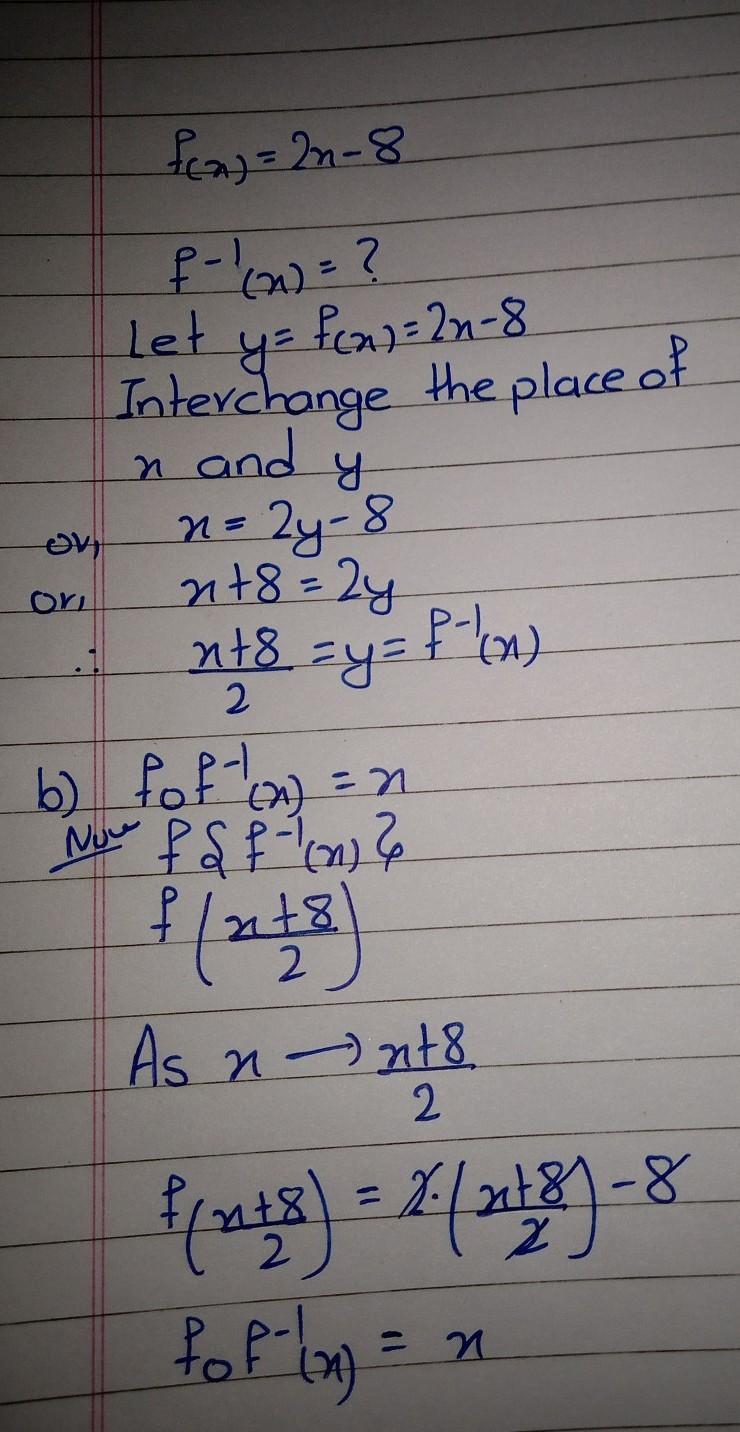 f(x) = 2x - 8
f⁻¹(x) = ?
Let y = f(x) = 2x - 8
Interchange the place of
x and y
or, x = 2y - 8
or, x + 8 = 2y
∴ x+8/2 = y = f⁻¹(x)
b) fof⁻¹(x) = x
Now f{f⁻¹(x)}
f(x+8/2)
As x → x+8/2
f(x+8/2) = 2·(x+8/2) - 8
fof⁻¹(x) = x